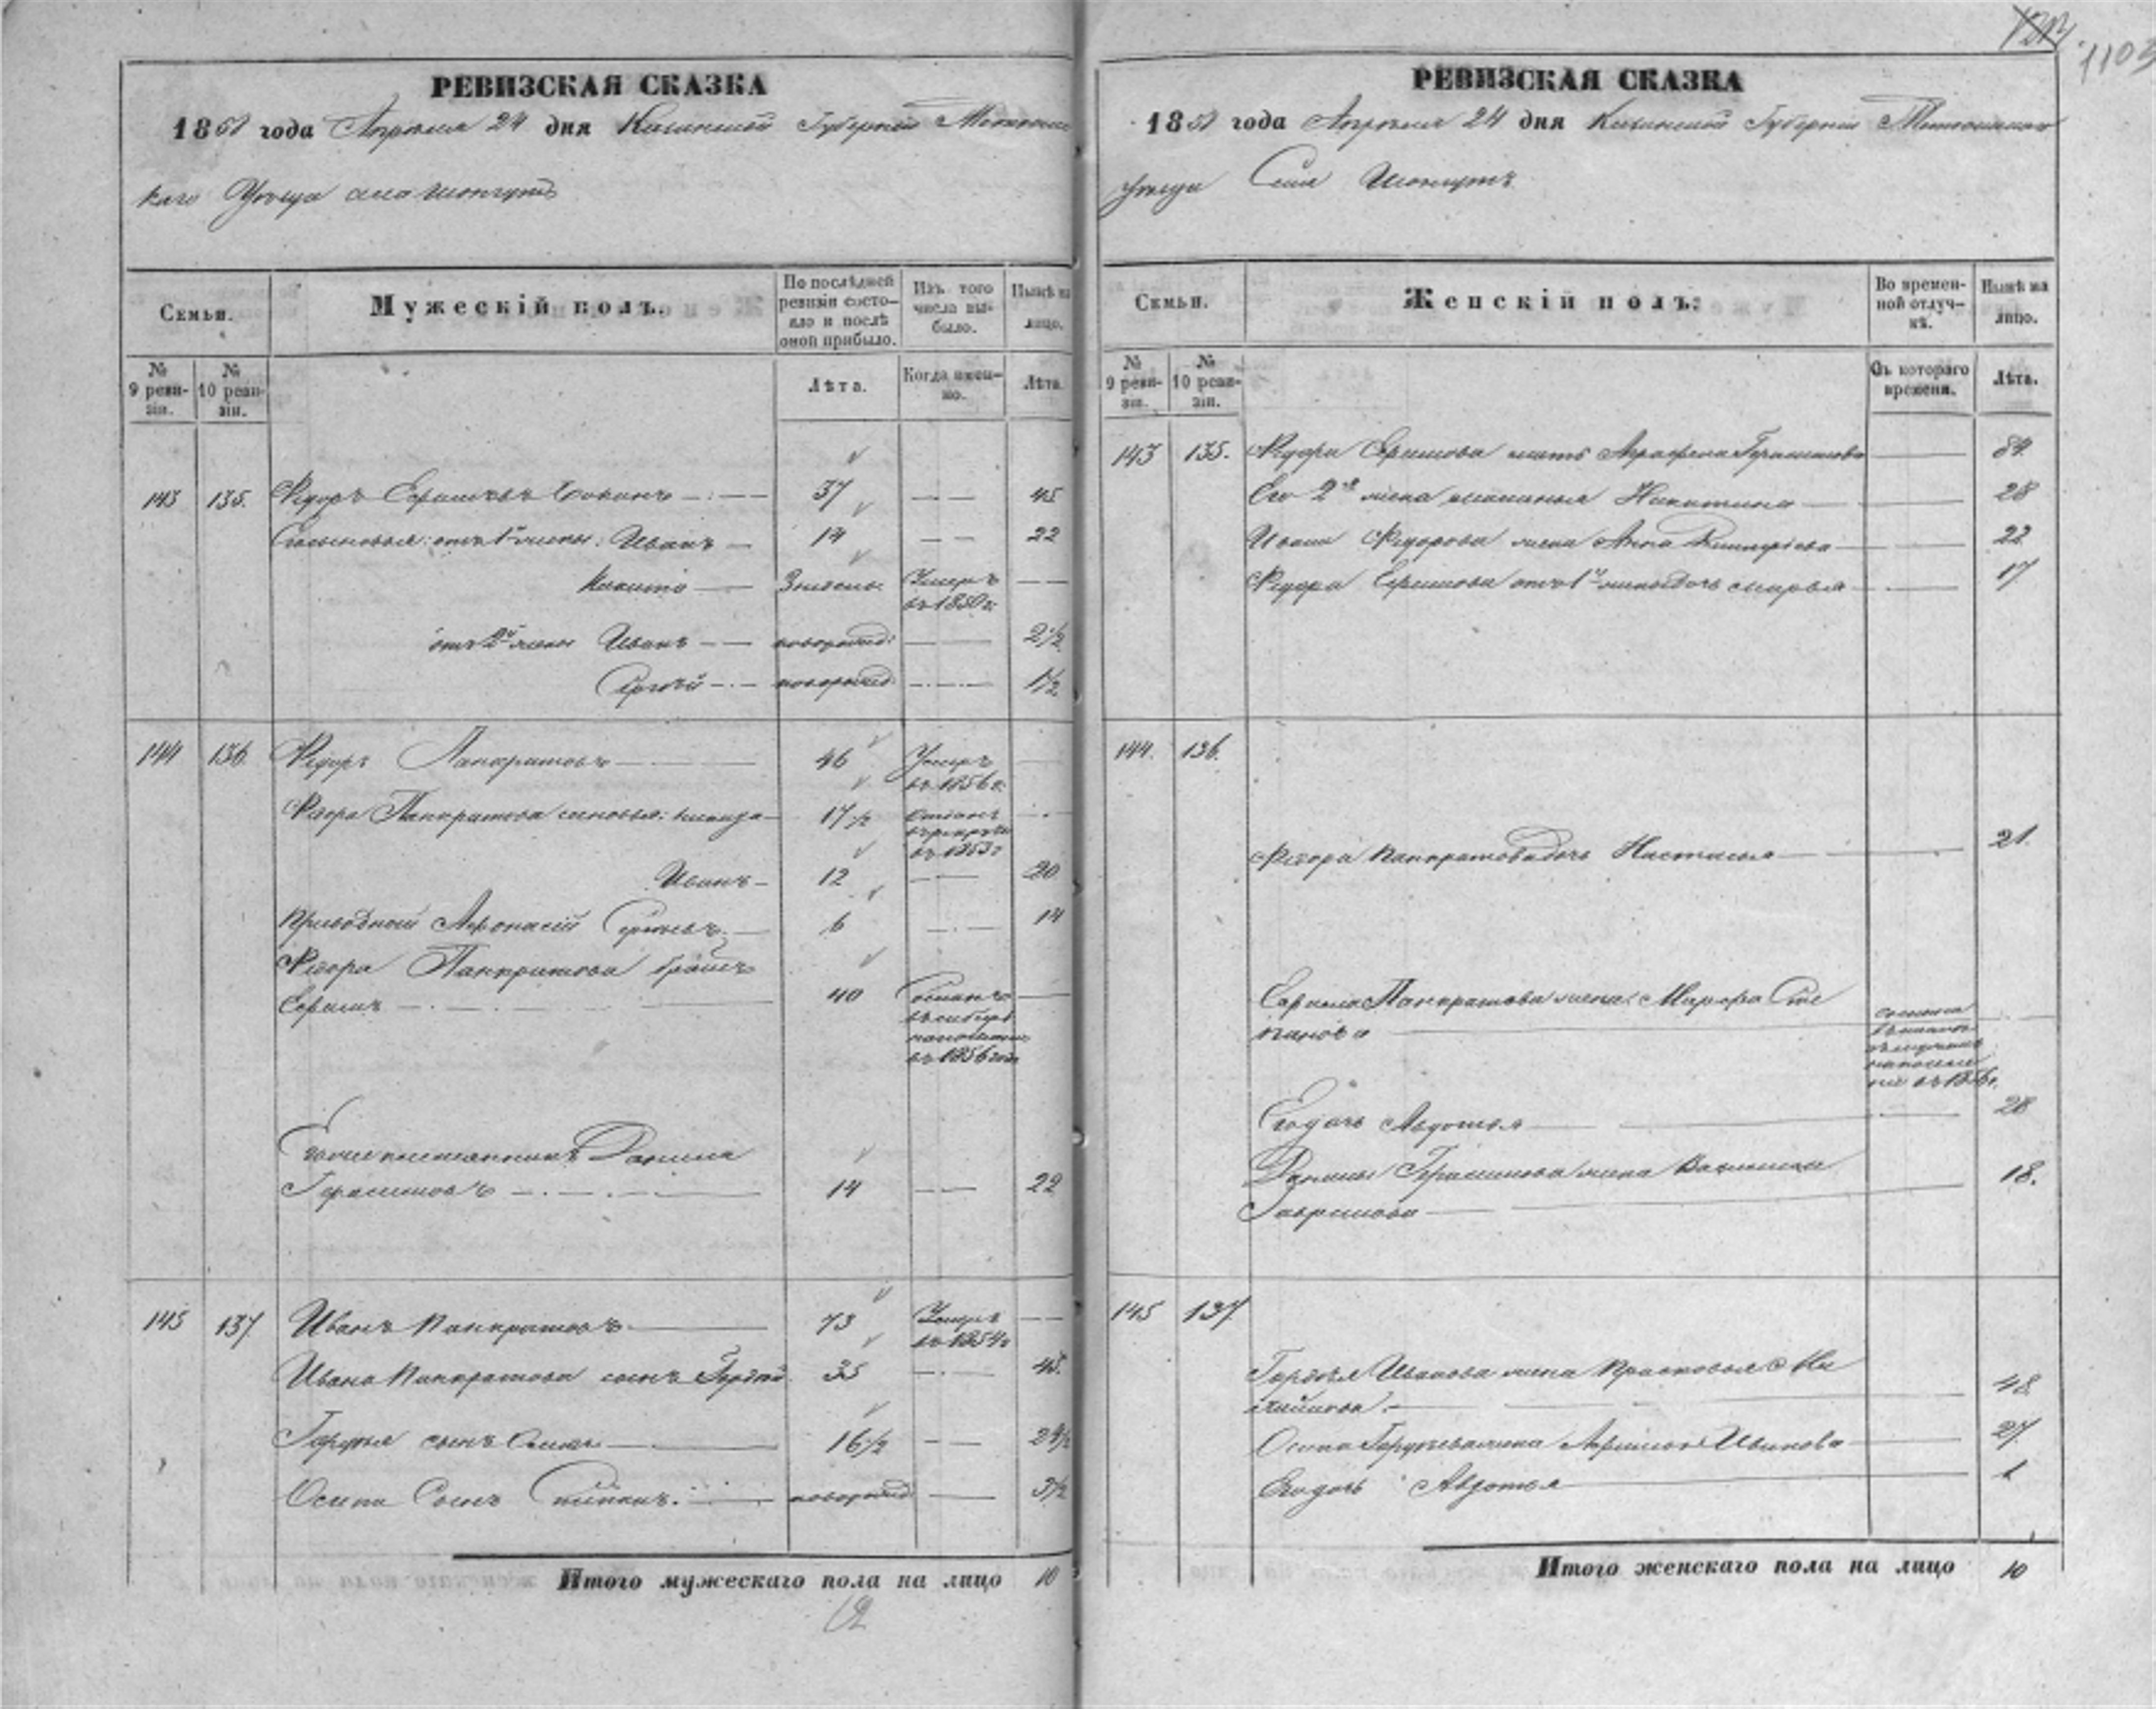 1103
РЕВИЗСКАЯ СКАЗКА
1858 года Апреля 24 дня Казанской Губернiи
каго Уезда села Шонгутъ
Семьи.
Мужескiй полъ.
По послѣдней ревизiи состояло и послѣ оной прибыло.
Изъ того числа выбыло.
Нынѣ на лицо.
№ 9 ревизiи.
№ 10 ревизiи.
Лѣта.
Когда именно.
Лѣта.
143 135. Федоръ Ефимовъ 37 45
Сыновья: отъ 1й жены: Иванъ 14 22
Никита Умеръ въ 1850 г:
отъ 2й жены Иванъ новорожд: 2 1/2
Сергѣй новорожд: 1 1/2
144 136. Федоръ Панкратовъ 46 Умеръ въ 1856 г:
Федора Панкратова сыновья: 17 1/2 Отданъ въ рекруты въ 1853 г
Иванъ 12 20
Приводной Афонасiй Сергѣевъ 6 14
Федора Панкратова братъ
Ефимъ 40 Сосланъ въ сибирь на поселенiе въ 1856 году
Его же племянникъ Данила
Герасимовъ 14 22
145 137. Иванъ Панкратовъ 73 Умеръ въ 1854 г
Ивана Панкратова сынъ Гордѣй 35 43.
Гордѣя сынъ Осипъ 16 1/2 24 1/2
Осипа Сынъ Степанъ новорожд: 3 1/2
Итого мужескаго пола на лицо 10
РЕВИЗСКАЯ СКАЗКА
1858 года Апреля 24 дня Казанской Губернiи
уезда Села Шонгутъ
Семьи.
Женскiй полъ:
Во временной отлучкѣ.
Нынѣ на лицо.
№ 9 ревизiи.
№ 10 ревизiи.
Съ котораго времени.
Лѣта.
143 135. Федора Ефимова мать Аграфена Герасимова 84.
Его 2я жена Никитина 28
Ивана Федорова жена Анна Дмитрiева 22
Федора Ефимова отъ 1й жены дочь Марья 17
144. 136.
Федора Панкратова дочь Настасья 21.
Ефима Панкратова жена Марфа Сте
панова въ 1856 г.
Его дочь Авдотья 28
Данилы Герасимова жена Василиса
Гаврилова 18.
145 137.
Гордѣя Иванова жена Прасковья Ми
хайлова 48
Осипа Гордѣева жена Ивановa 27.
Его дочь Авдотья 1
Итого женскаго пола на лицо 10